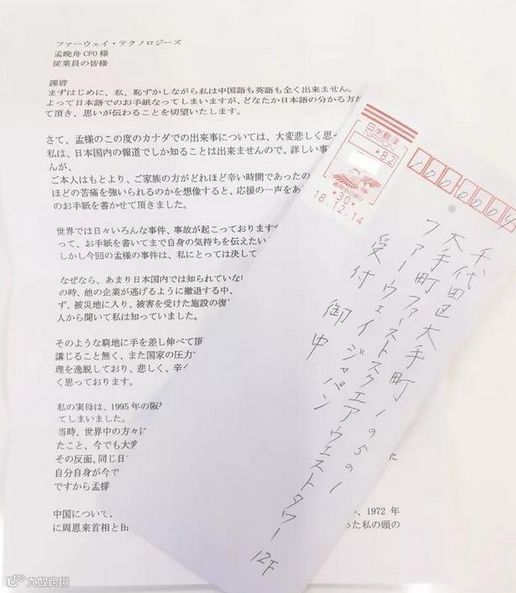 ファーウェイ・テクノロジーズ
孟晩舟 CFO 様
従業員の皆様
謹啓
まずはじめに、私、恥ずかしながら私は中国語も英語も全く出来ません。
よって日本語でのお手紙なってしまいますが、どなたか日本語の分かる方が
て頂き、思いが伝わることを切望いたします。
さて、孟様のこの度のカナダでの出来事については、大変悲しく思
私は、日本国内の報道でしか知ることは出来ませんので、詳しい事
んが、
ご本人はもとより、ご家族の方がどれほど辛い時間であったの
ほどの苦痛を強いられるのかを想像すると、応援の一声をあ
のお手紙を書かせて頂きました。
世界では日々いろんな事件、事故が起こっております
って、お手紙を書いてまで自身の気持ちを伝えたい
しかし今回の孟様の事件は、私にとっては決して
なぜなら、あまり日本国内では知られていない
の時、他の企業が逃げるように撤退する中、
ず、被災地に入り、被害を受けた施設の復
人から聞いて私は知っていました。
そのような窮地に手を差し伸べて頂
講じること無く、また国家の圧力
理を逸脱しており、悲しく、辛
く思っております。
私の実母は、1995 年の阪
てしまいました。
当時、世界中の方々に
たこと、今でも大変
その反面、同じ日
自分自身が今で
ですから孟様
中国について、
に周恩来首相と田
、1972 年
った私の頭の
日本郵便
18.12.14
千代田区大手町1の5の1
大手町ファーストスクエアウエストタワー 12F
ファーウェイジャパン
受付 御中
大叔跨境